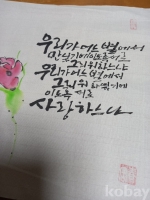 우리가 어느 별에서
만났기에 이토록 서로
그리워하느냐
우리가 어느 별에서
그리워하였기에
이토록 서로
사랑하느냐
kobay